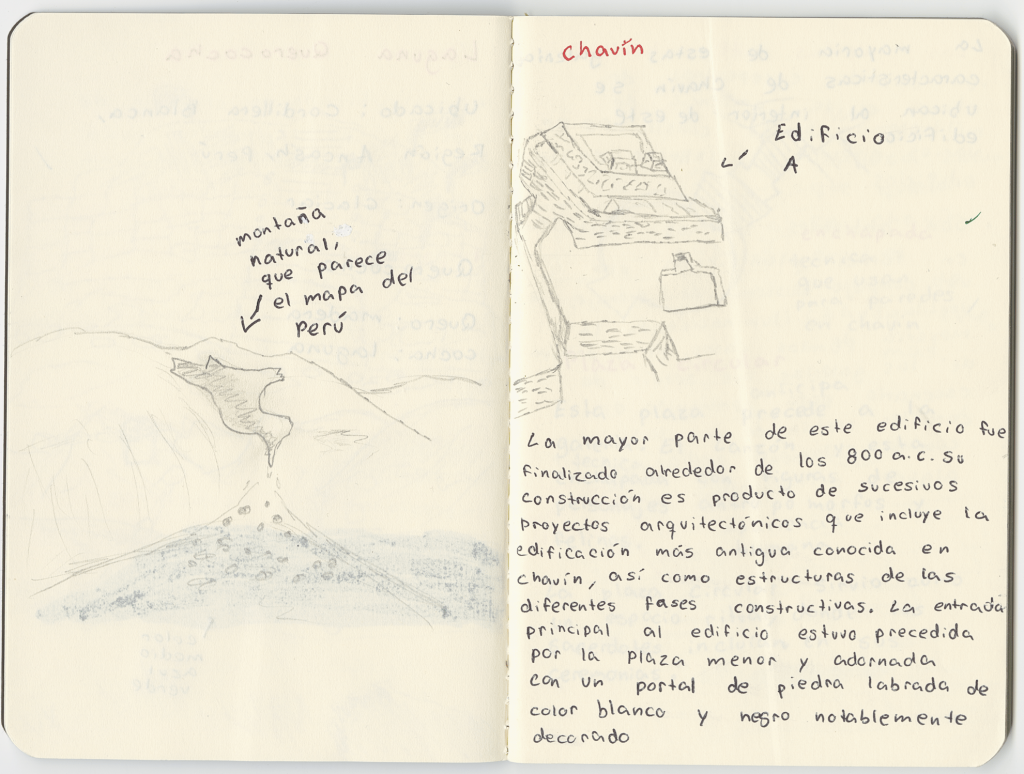 montaña
natural,
que parece
el mapa del
Perú
chavín
Edificio
A
La mayor parte de este edificio fue
finalizado alrededor de los 800 a.c. Su
construcción es producto de sucesivos
proyectos arquitectónicos que incluye la
edificación más antigua conocida en
chavín, así como estructuras de las
diferentes fases constructivas. La entrada
principal al edificio estuvo precedida
por la plaza menor y adornada
con un portal de piedra labrada de
color blanco y negro notablemente
decorado